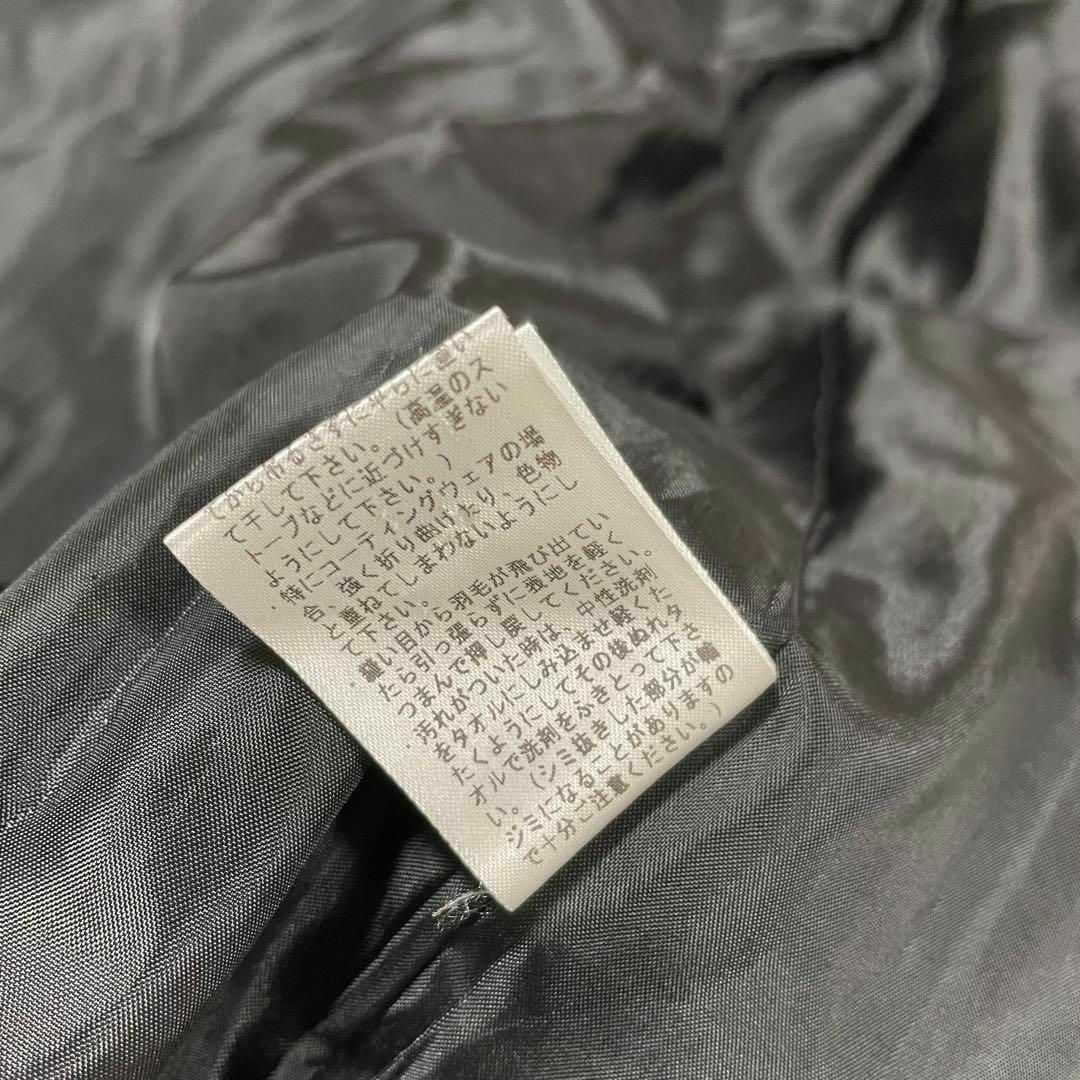 て干して下さい。(高温のス
トーブなどに近づけすぎない
ようにして下さい。)
・特にコーティングウェアの場
合、強く折り曲げたり、色物
と重ねてしまわないようにし
て下さい。
・縫い目から羽毛が飛び出てい
たら引っ張らずに表地を軽く
つまんで押し戻してください。
・汚れがついた時は、中性洗剤
をタオルにしみ込ませ軽くた
たくようにしてその後ぬれタ
オルで洗剤をふきとって下さ
い。(シミ抜きした部分が輪
ジミになることがありますの
で十分ご注意ください。)